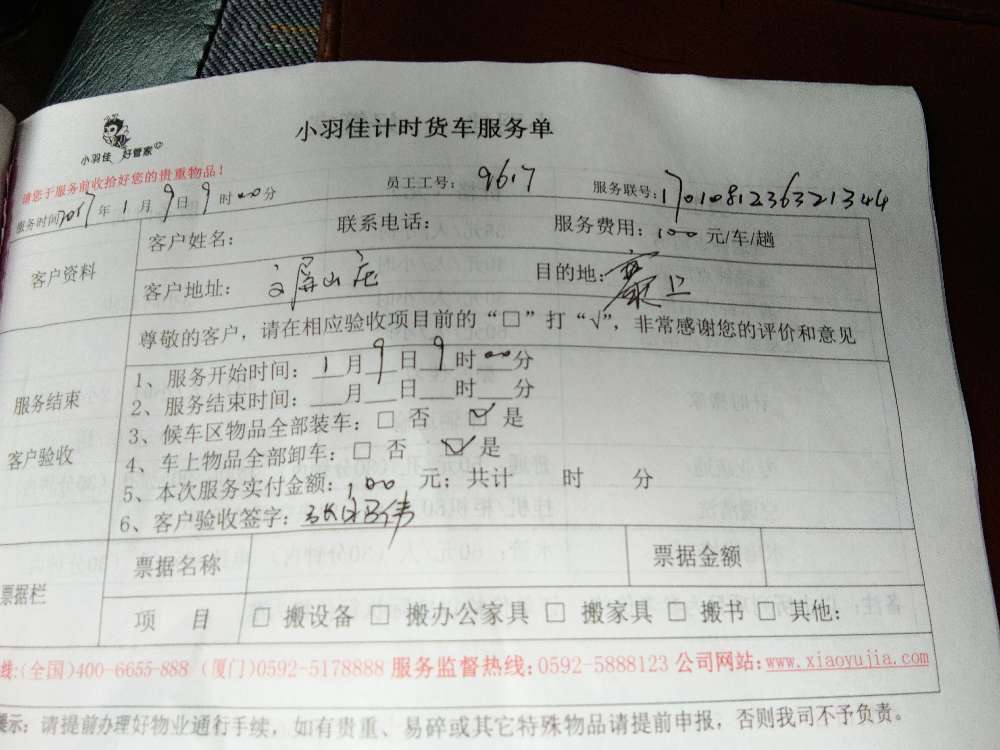 小羽佳计时货车服务单
小羽佳 好管家
请您于服务前收拾好您的贵重物品!
服务时间2017年1月9日9时00分 员工工号: 9617 服务联号: 1701081236321344
客户资料
客户姓名: 联系电话: 服务费用: 100 元/车/趟
客户地址: 文屏山庄 目的地: 上
尊敬的客户，请在相应验收项目前的“□”打“√”，非常感谢您的评价和意见
服务结束
客户验收
1、服务开始时间: 1月9日9时00分
2、服务结束时间: 月 日 时 分
3、候车区物品全部装车: □ 否 ☑ 是
4、车上物品全部卸车: □ 否 ☑ 是
5、本次服务实付金额: 100 元; 共计 时 分
6、客户验收签字:
票据栏
票据名称 票据金额
项 目 □ 搬设备 □ 搬办公家具 □ 搬家具 □ 搬书 □ 其他:
线:(全国)400-6655-888 (厦门)0592-5178888 服务监督热线:0592-5888123 公司网站:www.xiaoyujia.com
示: 请提前办理好物业通行手续，如有贵重、易碎或其它特殊物品请提前申报，否则我司不予负责。